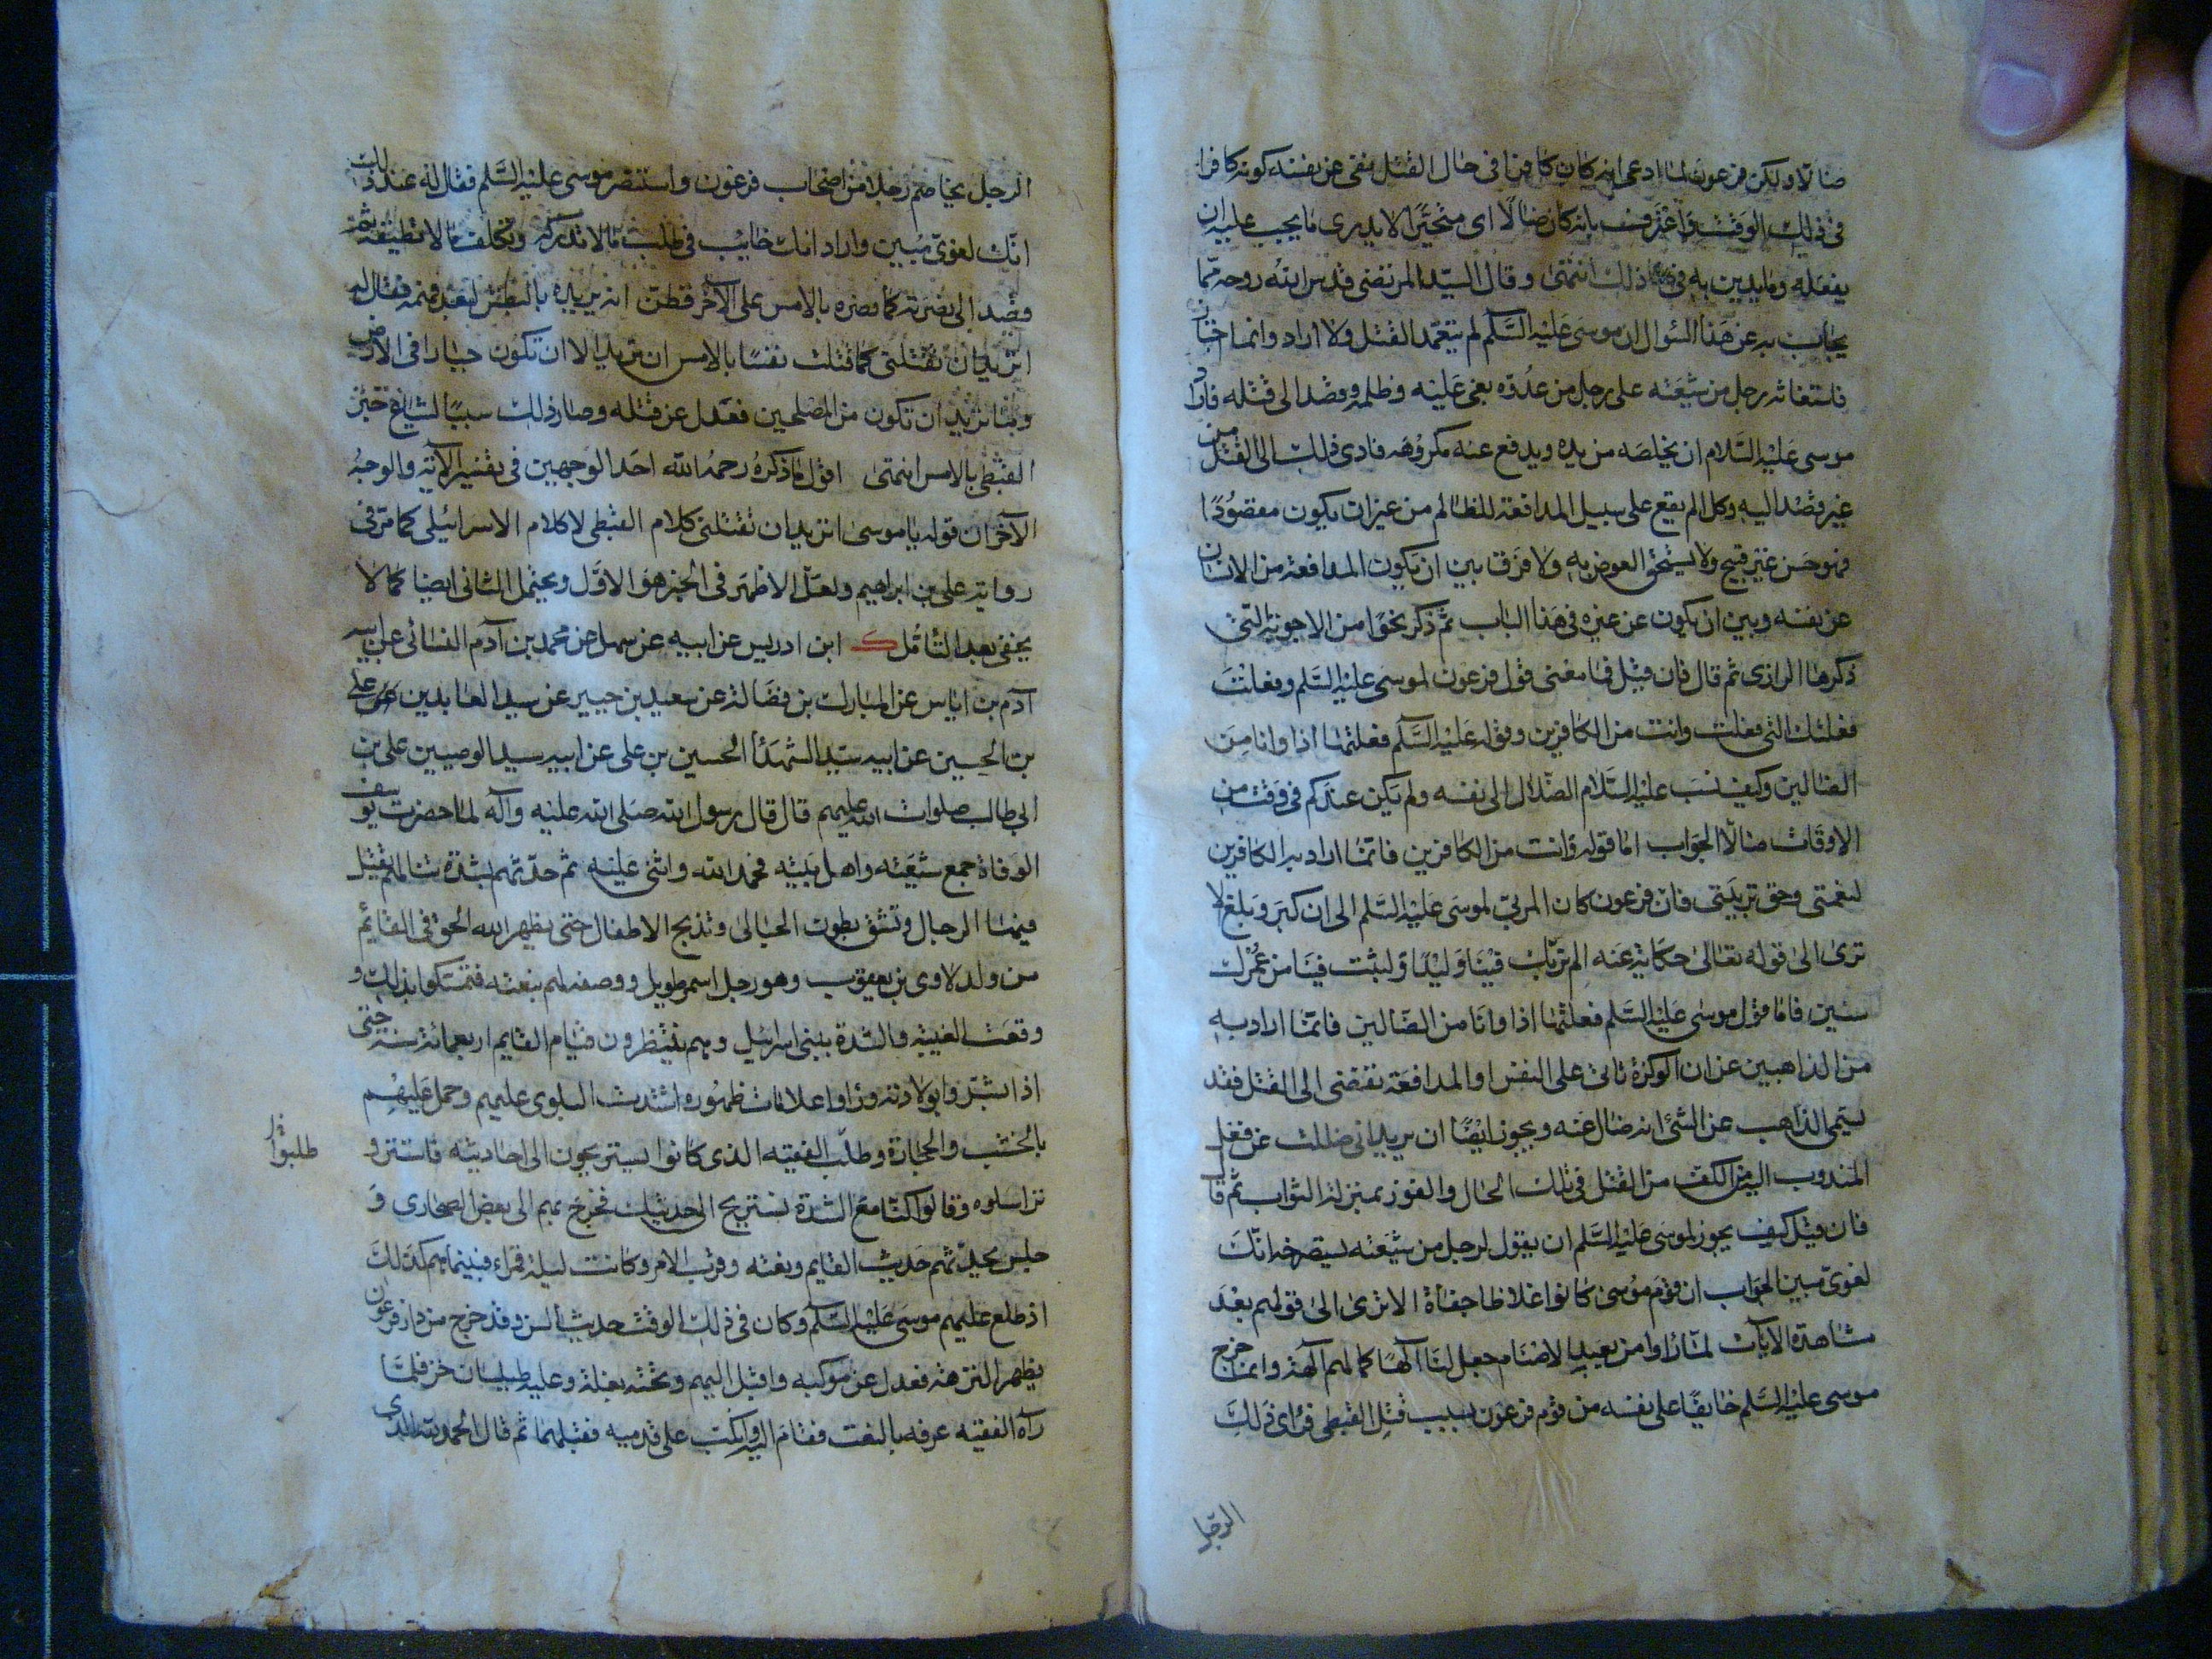 ضالا ولكن فرعون لما ادعى انه كان كافرا فى حال القتل نفى عن نفسه كونه كافرا
فى ذلك الوقت واعترف بانه كان ضالا اى متحيرا لا يدرى ما يجب عليه ان
يفعله وما يدين به فى ذلك انتهى وقال السيد المرتضى قدس الله روحه مما
يجاب به عن هذا السؤال ان موسى عليه السلم لم يتعمد القتل ولا اراد وانما اجتاز
فاستغاثه رجل من شيعته على رجل من عدوه بغى عليه وظلمه وقصد الى قتله فاراد
موسى عليه السلام ان يخلصه من يده ويدفع عنه مكروهه فادى ذلك الى القتل من
غير قصد اليه وكل الم يقع على سبيل المدافعة للظالم من غير ان يكون مقصودا
فهو حسن غير قبيح ولا يستحق العوض به ولا فرق بين ان تكون المدافعة من الانسان
عن نفسه وبين ان يكون عن غيره فى هذا الباب ثم ذكر نحوا من الاجوبة التى
ذكرها الرازى ثم قال فان قيل فما معنى قول فرعون لموسى عليه السلم وفعلت
فعلتك التى فعلت وانت من الكافرين وقوله عليه السلم فعلتها اذا وانا من
الضالين وكيف نسب عليه السلام الضلال الى نفسه ولم يكن عندكم فى وقت من
الاوقات ضالا الجواب اما قوله وانت من الكافرين فانما اراد به الكافرين
لنعمتى وحق تربيتى فان فرعون كان المربى لموسى عليه السلم الى ان كبر وبلغ الا
ترى الى قوله تعالى حكاية عنه الم نربك فينا وليدا ولبثت فينا من عمرك
سنين فاما قول موسى عليه السلم فعلتها اذا وانا من الضالين فانما اراد به
من الذاهبين عن ان الوكزة تاتى على النفس او المدافعة تفضى الى القتل فقد
يسمى الذاهب عن الشئ انه ضال عنه ويجوز ايضا ان يريد انى ضللت عن فعل
المندوب اليه من الكف من القتل فى تلك الحال والفوز بمنزلة الثواب ثم قال
فان قيل كيف يجوز لموسى عليه السلم ان يقول لرجل من شيعته يستصرخه انك
لغوى مبين الجواب ان قوم موسى كانوا غلاظا جفاة الا ترى الى قولهم بعد
مشاهدة الايات لما راوا من يعبد الاصنام اجعل لنا آلها كما لهم آلهة وانما خرج
موسى عليه السلم خايفا على نفسه من قوم فرعون بسبب قتل القبطى فراى ذلك
الرجل
الرجل يخاصم رجلا من اصحاب فرعون واستنصر موسى عليه السلم فقال له عند ذلك
انك لغوى مبين واراد انك خايب فى طلب ما لا تدركه وتكلف ما لا تطيقه ثم
قصد الى نصرته كما نصره بالامس على الآخر فظن انه يريده بالبطش لبعد فهمه فقال له
اتريد ان تقتلنى كما قتلت نفسا بالامس ان تريد الا ان تكون جبارا فى الارض
وما تريد ان تكون من المصلحين فعدل عن قتله وصار ذلك سببا لشياع خبر
القبطى بالامس انتهى اقول ما ذكره رحمه الله احد الوجهين فى تفسير الآية والوجه
الآخر ان قوله يا موسى اتريد ان تقتلنى كلام القبطى لا كلام الاسرائيلى كما مر فى
رواية على بن ابراهيم ولعل الاظهر فى الخبر هو الاول ويحتمل الثانى ايضا كما لا
يخفى بعد التامل ك ابن ادريس عن ابيه عن سهل عن محمد بن آدم النسائى عن ابيه
آدم بن اياس عن المبارك بن فضالة عن سعيد بن جبير عن سيد العابدين على
بن الحسين عن ابيه سيد الشهدا الحسين بن على عن ابيه سيد الوصيين على بن
ابى طالب صلوات الله عليهم قال قال رسول الله صلى الله عليه وآله لما حضرت يوسف
الوفاة جمع شيعته واهل بيته فحمد الله واثنى عليه ثم حدثهم بشدة تنالهم يقتل
فيها الرجال وتشق بطون الحبالى وتذبح الاطفال حتى يظهر الله الحق فى القايم
من ولد لاوى بن يعقوب وهو رجل اسمر طويل ووصفه لهم بنعته فتمسكوا بذلك و
وقعت الغيبة والشدة ببنى اسرئيل وهم ينتظرون قيام القايم اربعمائة سنة حتى
اذا بشروا بولادته وراوا علامات ظهوره اشتدت البلوى عليهم وحمل عليهم
بالخشب والحجارة وطلب الفقيه الذى كانوا يستريحون الى احاديثه فاستتر و
طلبوا
تراسلوه وقالوا كنا مع الشدة نستريح الى حديثك فخرج بهم الى بعض الصحارى و
جلس يحدثهم حديث القايم ونعته وقرب الامر وكانت ليلة قمراء فبينما هم كذلك
اذ طلع عليهم موسى عليه السلم وكان فى ذلك الوقت حديث السن وقد خرج من دار فرعون
يظهر النزهة فعدل عن موكبه واقبل اليهم وتحته بغلة وعليه طيلسان خز فلما
رآه الفقيه عرفه بالنعت فقام اليه وانكب على قدميه فقبلهما ثم قال الحمد لله الذى